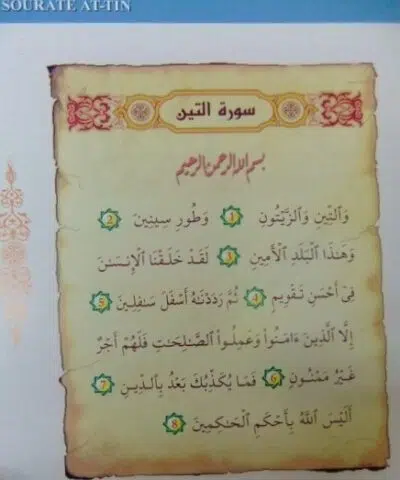 SOURATE AT-TIN
سورة التين
بسم الله الرحمن الرحيم
وَٱلتِّينِ وَٱلزَّيۡتُونِ 1 وَطُورِ سِينِينَ 2
وَهَٰذَا ٱلۡبَلَدِ ٱلۡأَمِينِ 3 لَقَدۡ خَلَقۡنَا ٱلۡإِنسَٰنَ
فِيٓ أَحۡسَنِ تَقۡوِيمٖ 4 ثُمَّ رَدَدۡنَٰهُ أَسۡفَلَ سَٰفِلِينَ 5
إِلَّا ٱلَّذِينَ ءَامَنُواْ وَعَمِلُواْ ٱلصَّٰلِحَٰتِ فَلَهُمۡ أَجۡرٌ
غَيۡرُ مَمۡنُونٖ 6 فَمَا يُكَذِّبُكَ بَعۡدُ بِٱلدِّينِ 7
أَلَيۡسَ ٱللَّهُ بِأَحۡكَمِ ٱلۡحَٰكِمِينَ 8